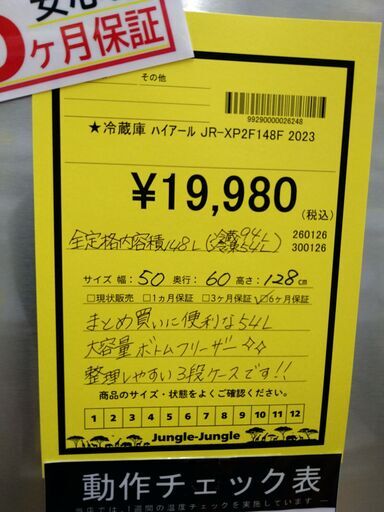 ヶ月保証
その他
99290000026248
★冷蔵庫 ハイアール JR-XP2F148F 2023
¥19,980
(税込)
全定格内容積148L(冷蔵94L 冷凍54L)
260126
300126
サイズ 幅: 50 奥行: 60 高さ: 128cm
□現状販売 □1ヵ月保証 □3ヶ月保証 ☑6ヶ月保証
まとめ買いに便利な54L
大容量ボトムフリーザー☆☆
整理しやすい3段ケースです!!
商品のサイズ・状態をよくご確認ください。
1 2 3 4 5 6 7 8 9 10 11 12
Jungle-Jungle
動作チェック表
当店では、1週間の温度チェックを実施しています